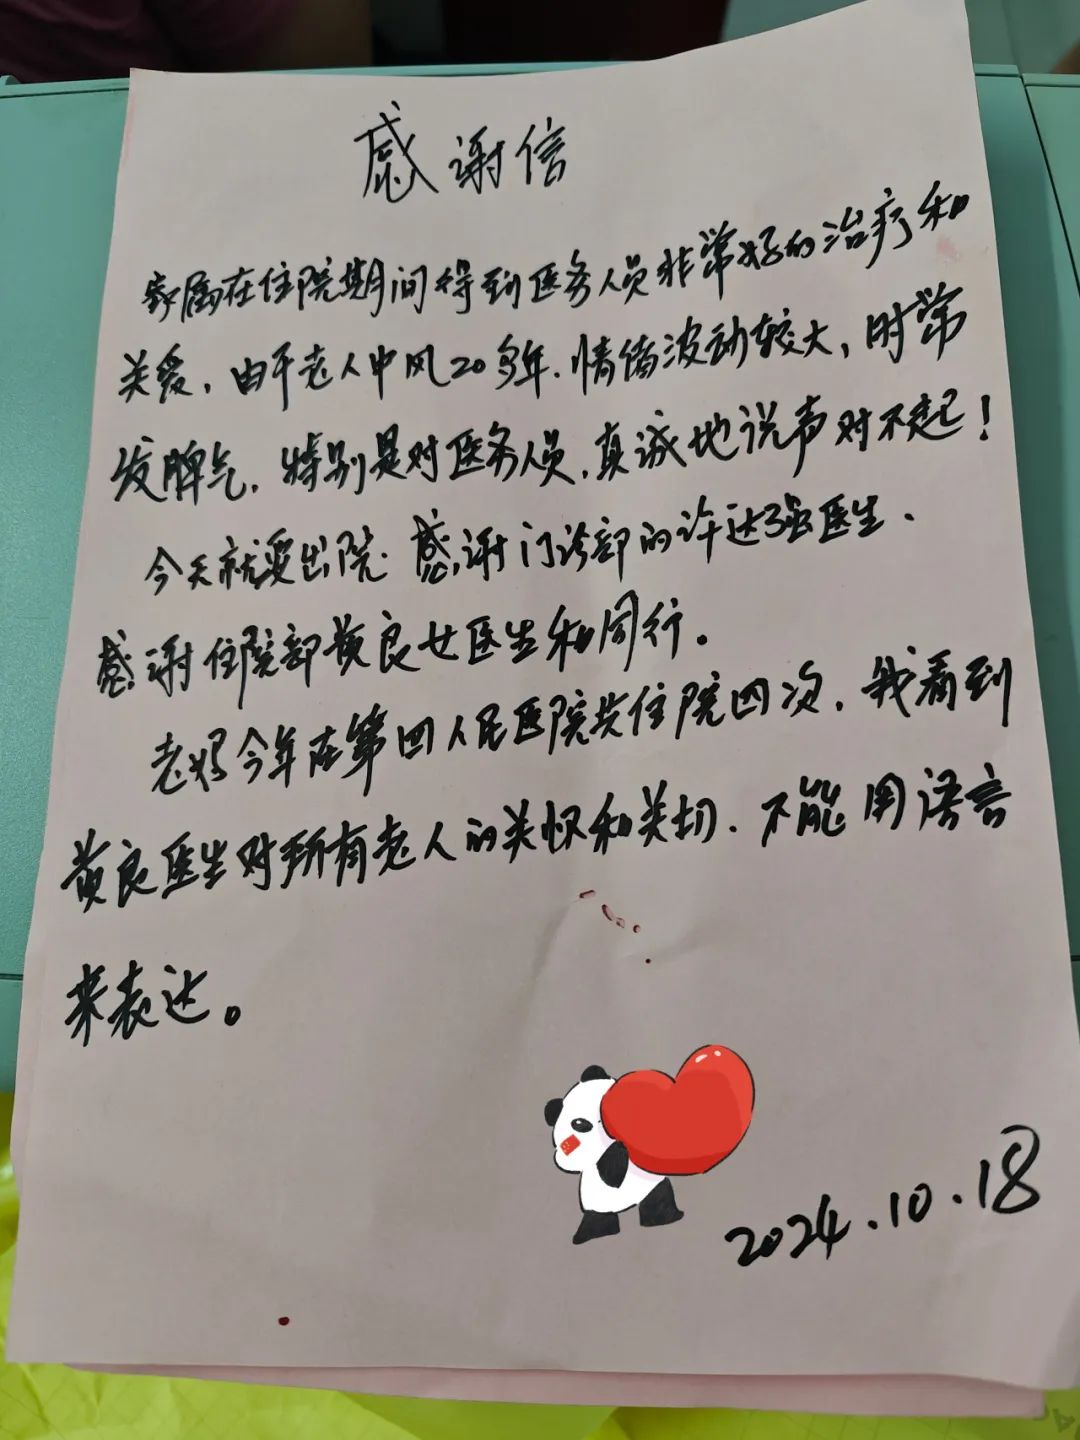 感谢信
家属在住院期间得到医务人员非常好的治疗和
关爱，由于老人中风20多年.情绪波动较大，时常
发脾气，特别是对医务人员，真诚地说声对不起！
今天就要出院.感谢门诊部的许达强医生.
感谢住院部黄良女医生和同行。
老妈今年在第四人民医院共住院四次，我看到
黄良医生对所有老人的关怀和关切、不能用语言
来表达。
2024.10.18